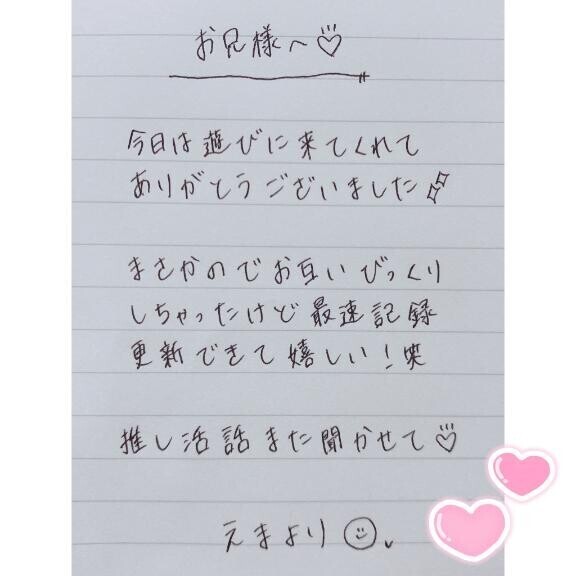 お兄様へ♡
今日は遊びに来てくれて
ありがとうございました✨
まさかのでお互いびっくり
しちゃったけど最速記録
更新できて嬉しい!笑
推し活話また聞かせて♡
えまより☺